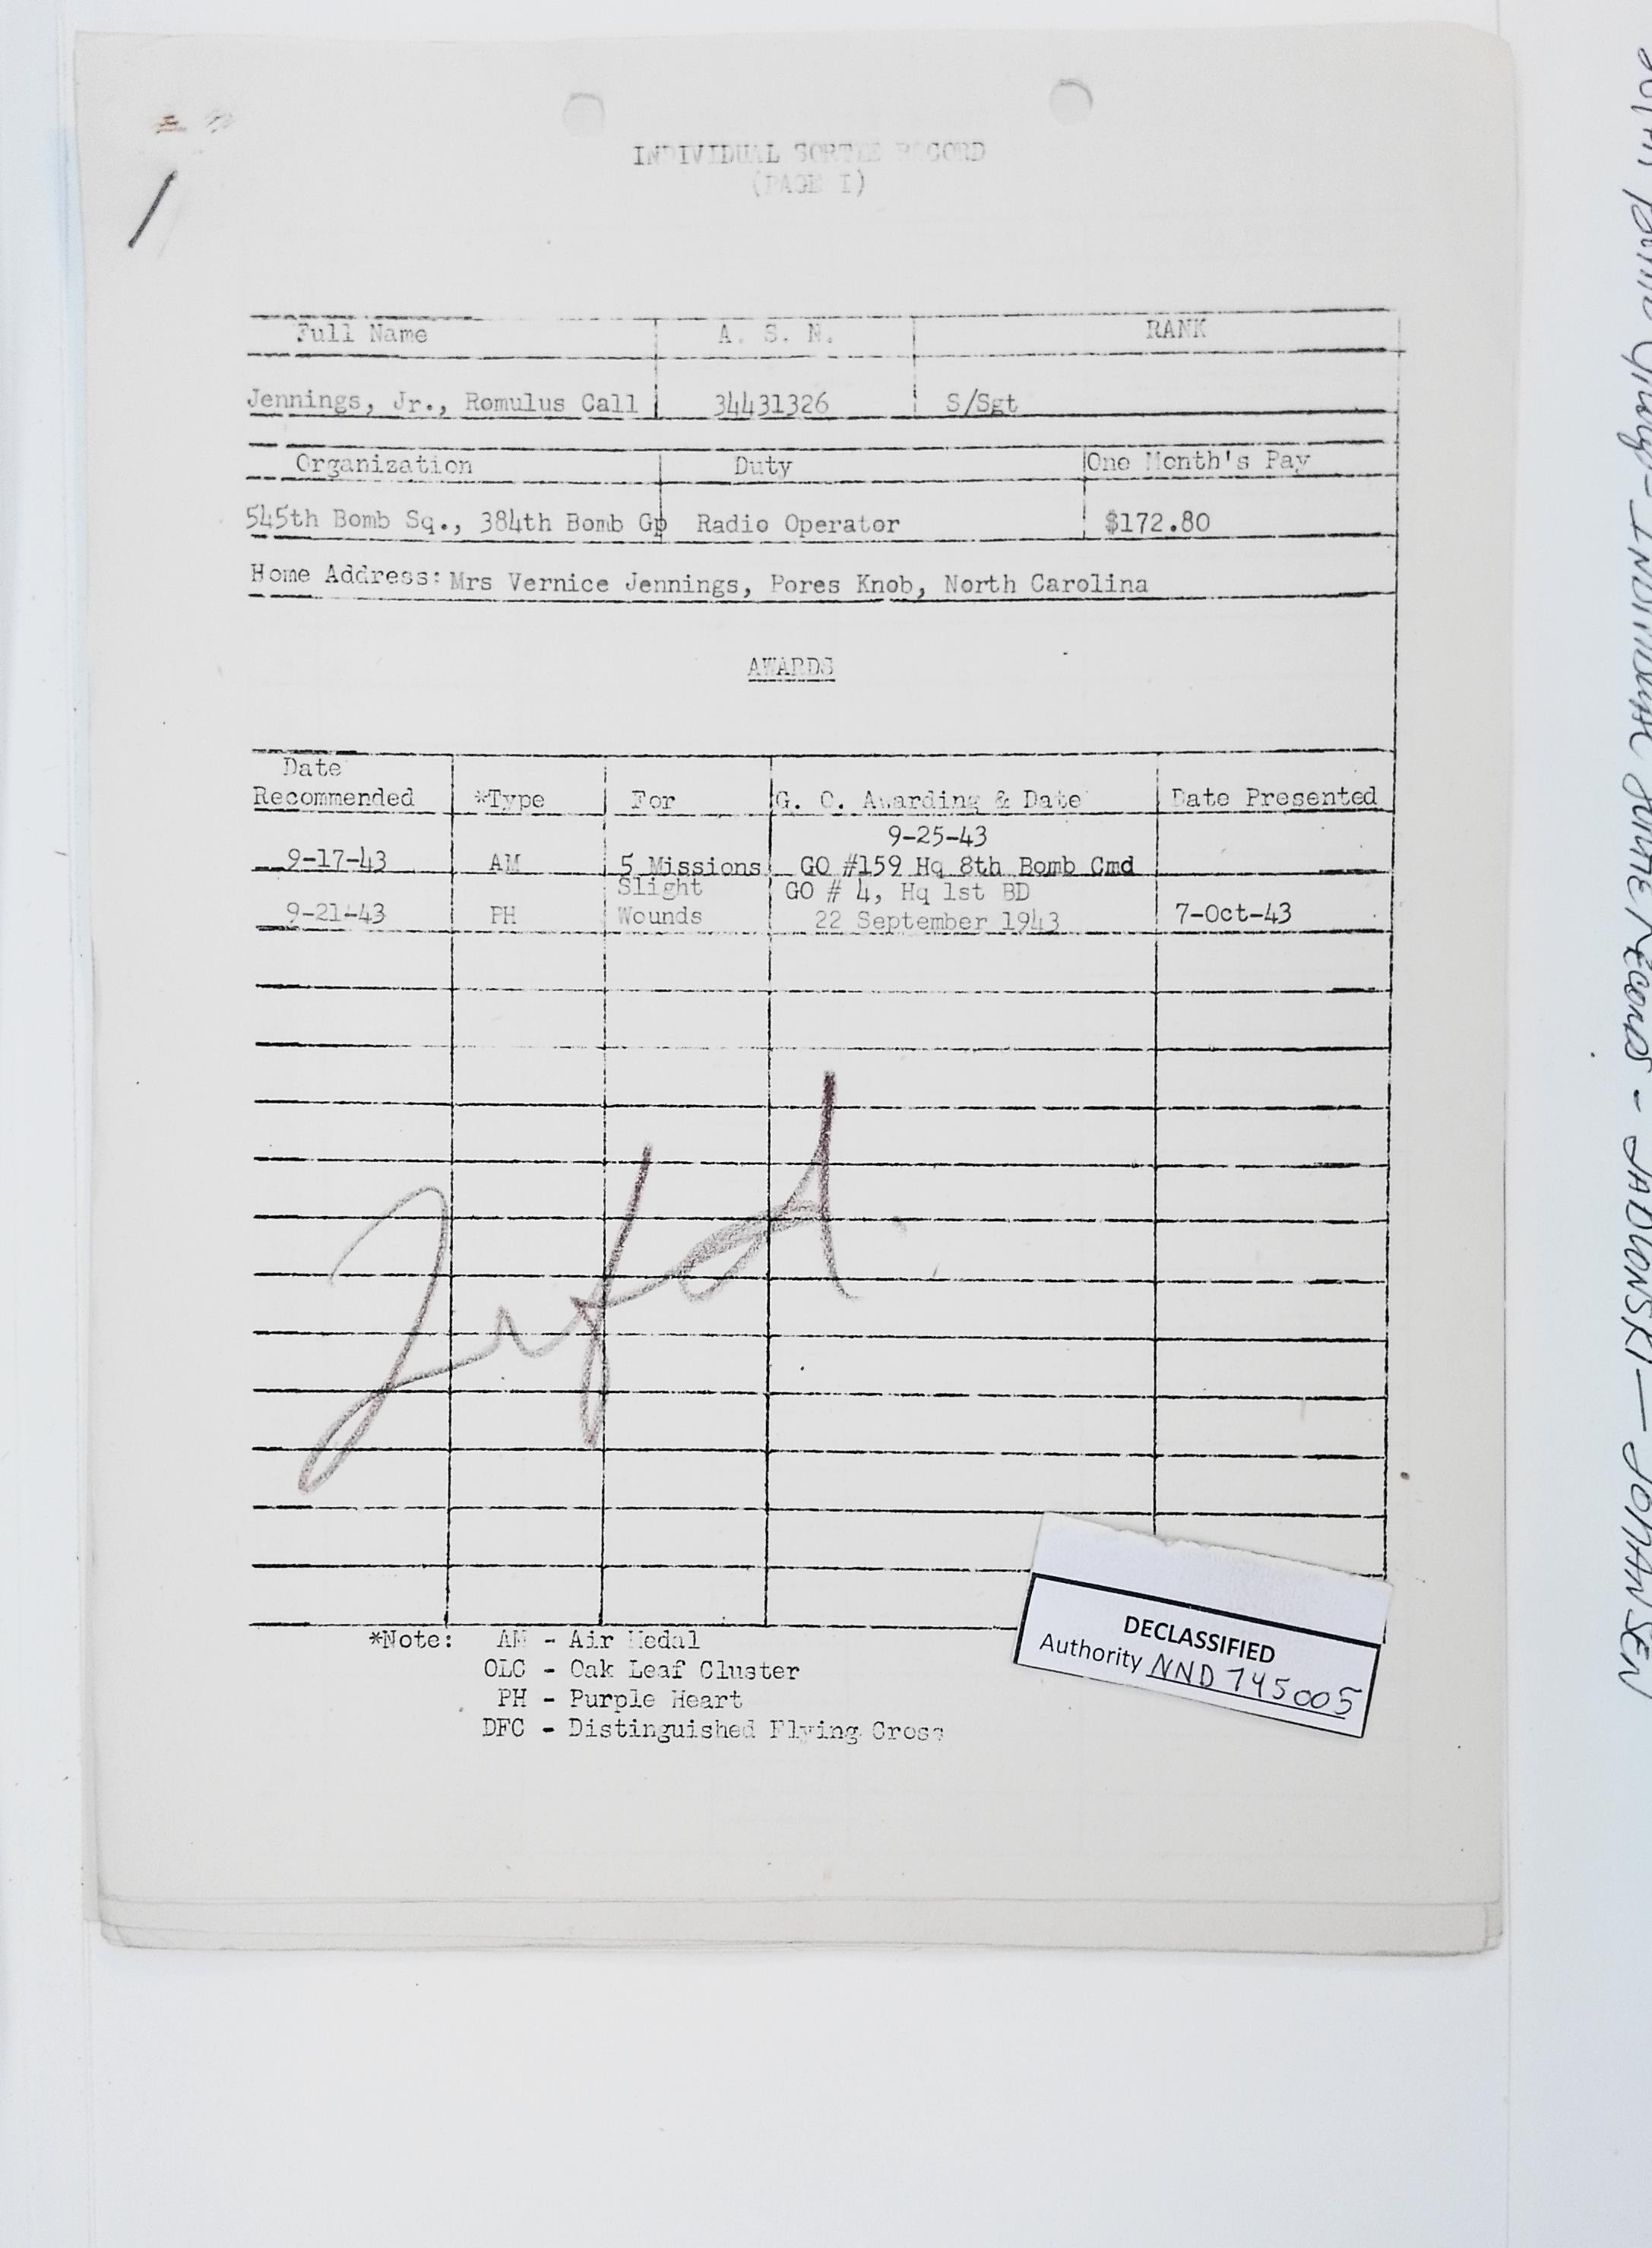 INDIVIDUAL SORTIE RECORD
(PAGE I)
Full Name A. S. N. RANK
Jennings, Jr., Romulus Call 34431326 S/Sgt
Organization Duty One Month's Pay
545th Bomb Sq., 384th Bomb Gp Radio Operator $172.80
Home Address: Mrs Vernice Jennings, Pores Knob, North Carolina
AWARDS
Date
Recommended *Type For G. O. Awarding & Date Date Presented
9-25-43
9-17-43 AM 5 Missions GO #159 Hq 8th Bomb Cmd
Slight GO # 4, Hq 1st BD
9-21-43 PH Wounds 22 September 1943 7-Oct-43
*Note: AM - Air Medal
OLC - Oak Leaf Cluster
PH - Purple Heart
DFC - Distinguished Flying Cross
DECLASSIFIED
Authority NND 745005
Bomb Group - INDIVIDUAL SORTIE RECORDS - JABLONSKI — JOHANSEN